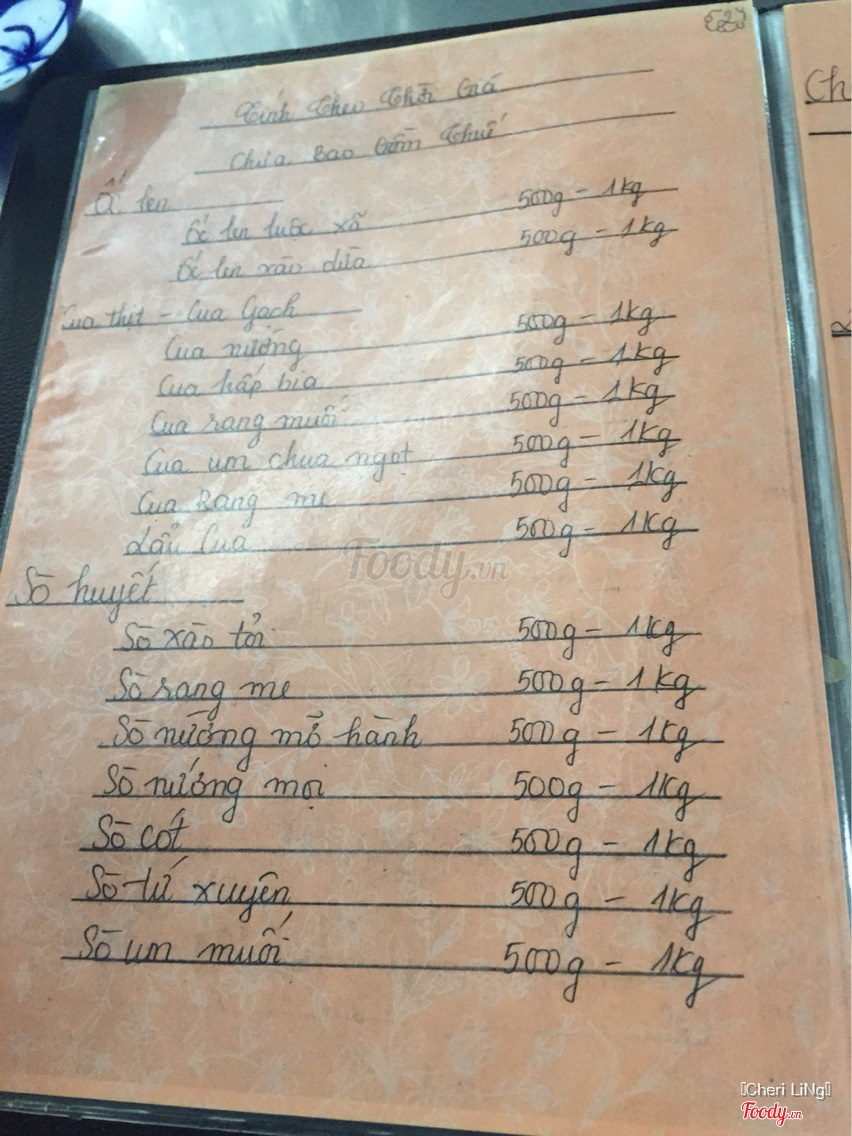 Tính Theo Thời Giá
Chưa Bao Gồm Thuế
Ố len
Ốc len luộc xả 500g - 1kg
Ốc len xào dừa 500g - 1kg
Cua thịt - Cua Gạch
Cua nướng 500g - 1kg
Cua hấp bia 500g - 1kg
Cua rang muối 500g - 1kg
Cua um chua ngọt 500g - 1kg
Cua Rang me 500g - 1kg
Lẩu Cua 500g - 1kg
Sò huyết
Sò xào tỏi 500g - 1kg
Sò rang me 500g - 1kg
Sò nướng mỡ hành 500g - 1kg
Sò nướng mọi 500g - 1kg
Sò cốt 500g - 1kg
Sò tứ xuyên 500g - 1kg
Sò um muối 500g - 1kg
Ch
Foody.vn
[Cheri LiNg]
Foody.vn